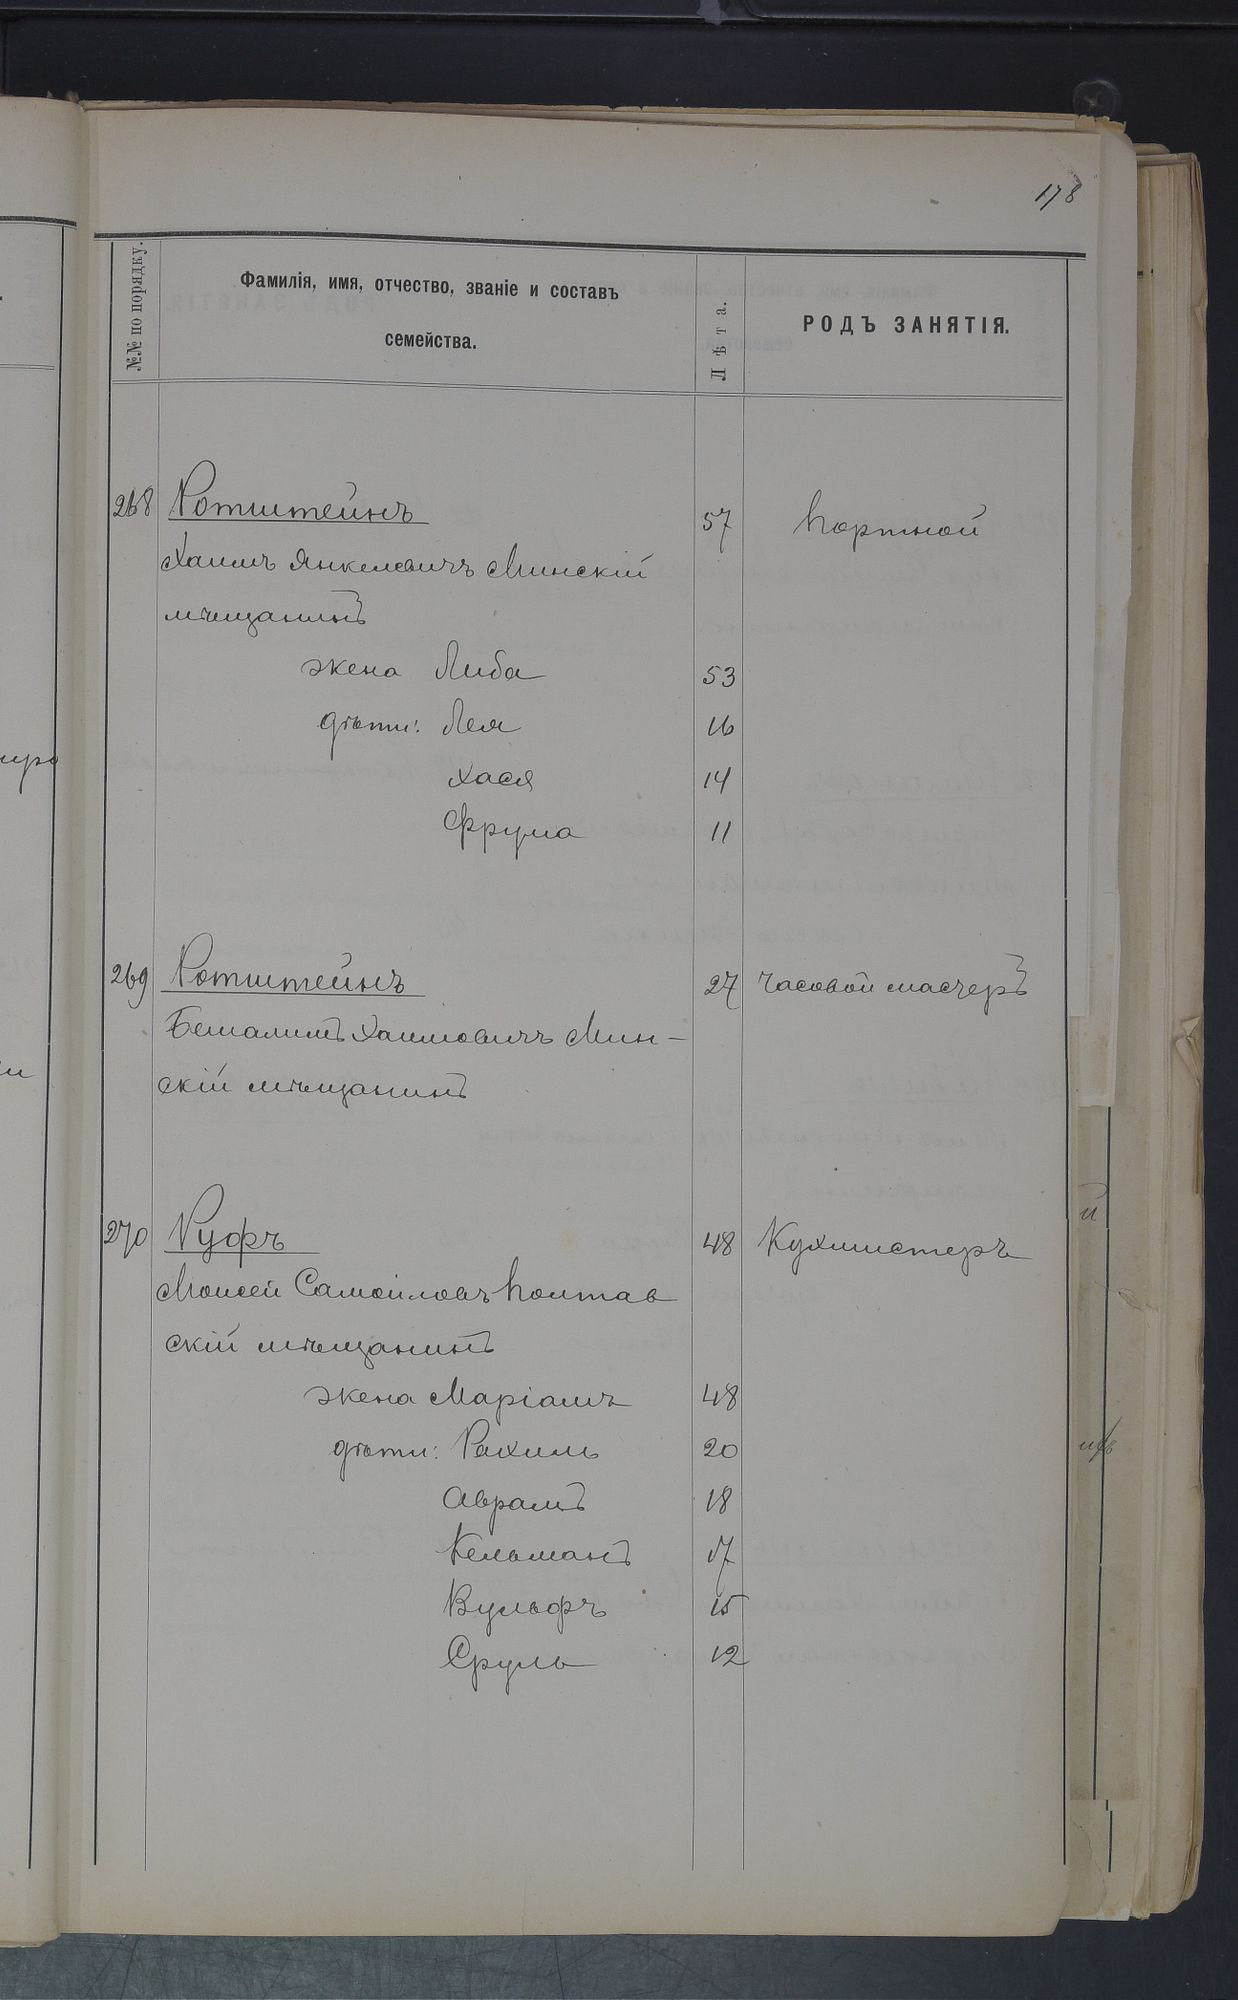 178
№№ по порядку.
Фамилія, имя, отчество, званіе и составъ
семейства.
Лѣта.
РОДЪ ЗАНЯТІЯ.
268 Ротштейнъ 57 Портной
Хаимъ Янкелевичъ Минскій
мѣщанинъ
жена Либа 53
дѣти: Лея 16
Хася 14
Фрума 11
269 Ротштейнъ 27 Часовой мастеръ
Хаимовичъ Мин-
скій мѣщанинъ
270 Руфъ 48 Кухмистеръ
Моисей Самойловъ Полтав
скій мѣщанинъ
жена Маріамъ 48
дѣти: Рахиль 20
Абрамъ 18
Кельманъ 17
Вульфъ 15
Сруль 12